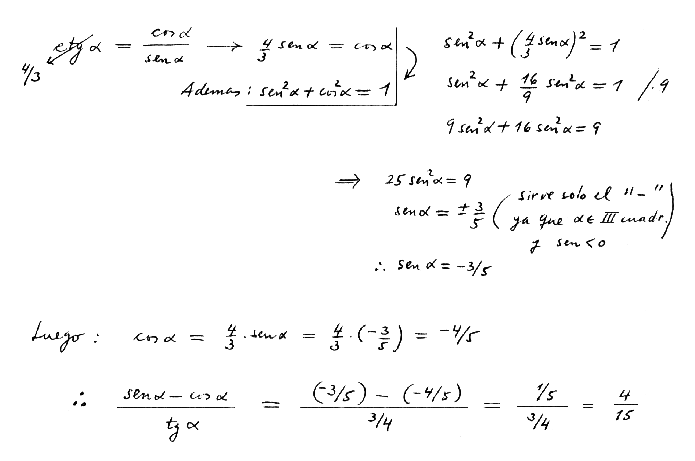 4/3 ctg α = cos α / sen α → 4/3 sen α = cos α
Ademas: sen²α + cos²α = 1
sen²α + (4/3 sen α)² = 1
sen²α + 16/9 sen²α = 1 /·9
9 sen²α + 16 sen²α = 9
⇒ 25 sen²α = 9
sen α = ± 3/5 (sirve solo el "–"
ya que α ∈ III cuadr.
y sen < 0)
∴ sen α = -3/5
Luego: cos α = 4/3 · sen α = 4/3 · (-3/5) = -4/5
∴ (sen α - cos α) / tg α = ((-3/5) - (-4/5)) / (3/4) = (1/5) / (3/4) = 4/15